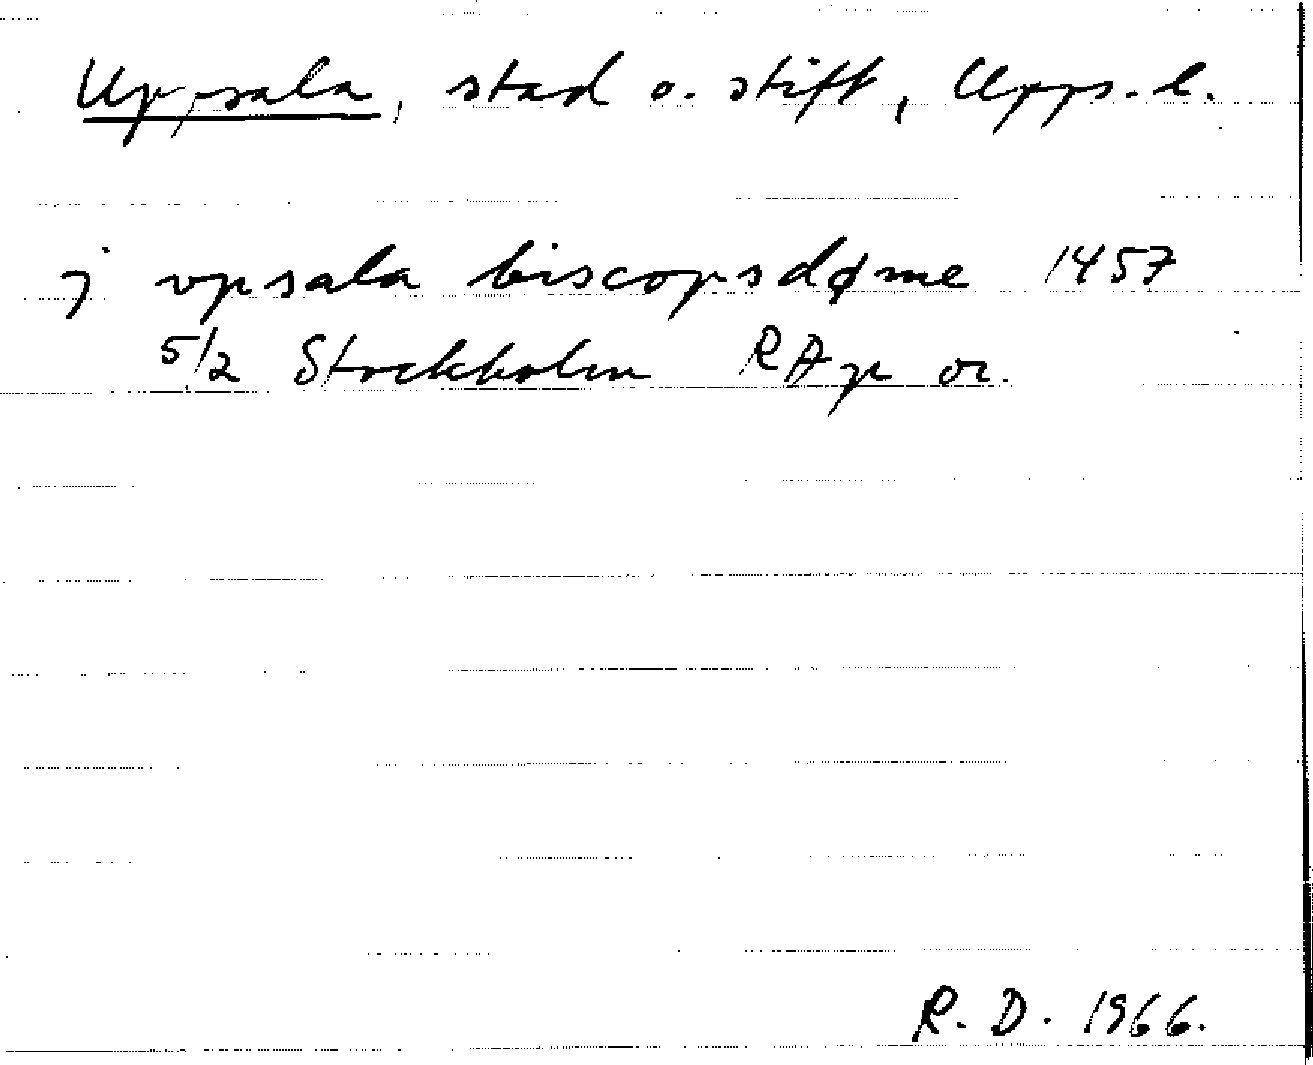 Uppsala, stad o. stift, Upps. l.
j vpsala biscopsdøme 1457
5/2 Stockholm RAp or.
R. D. 1966.